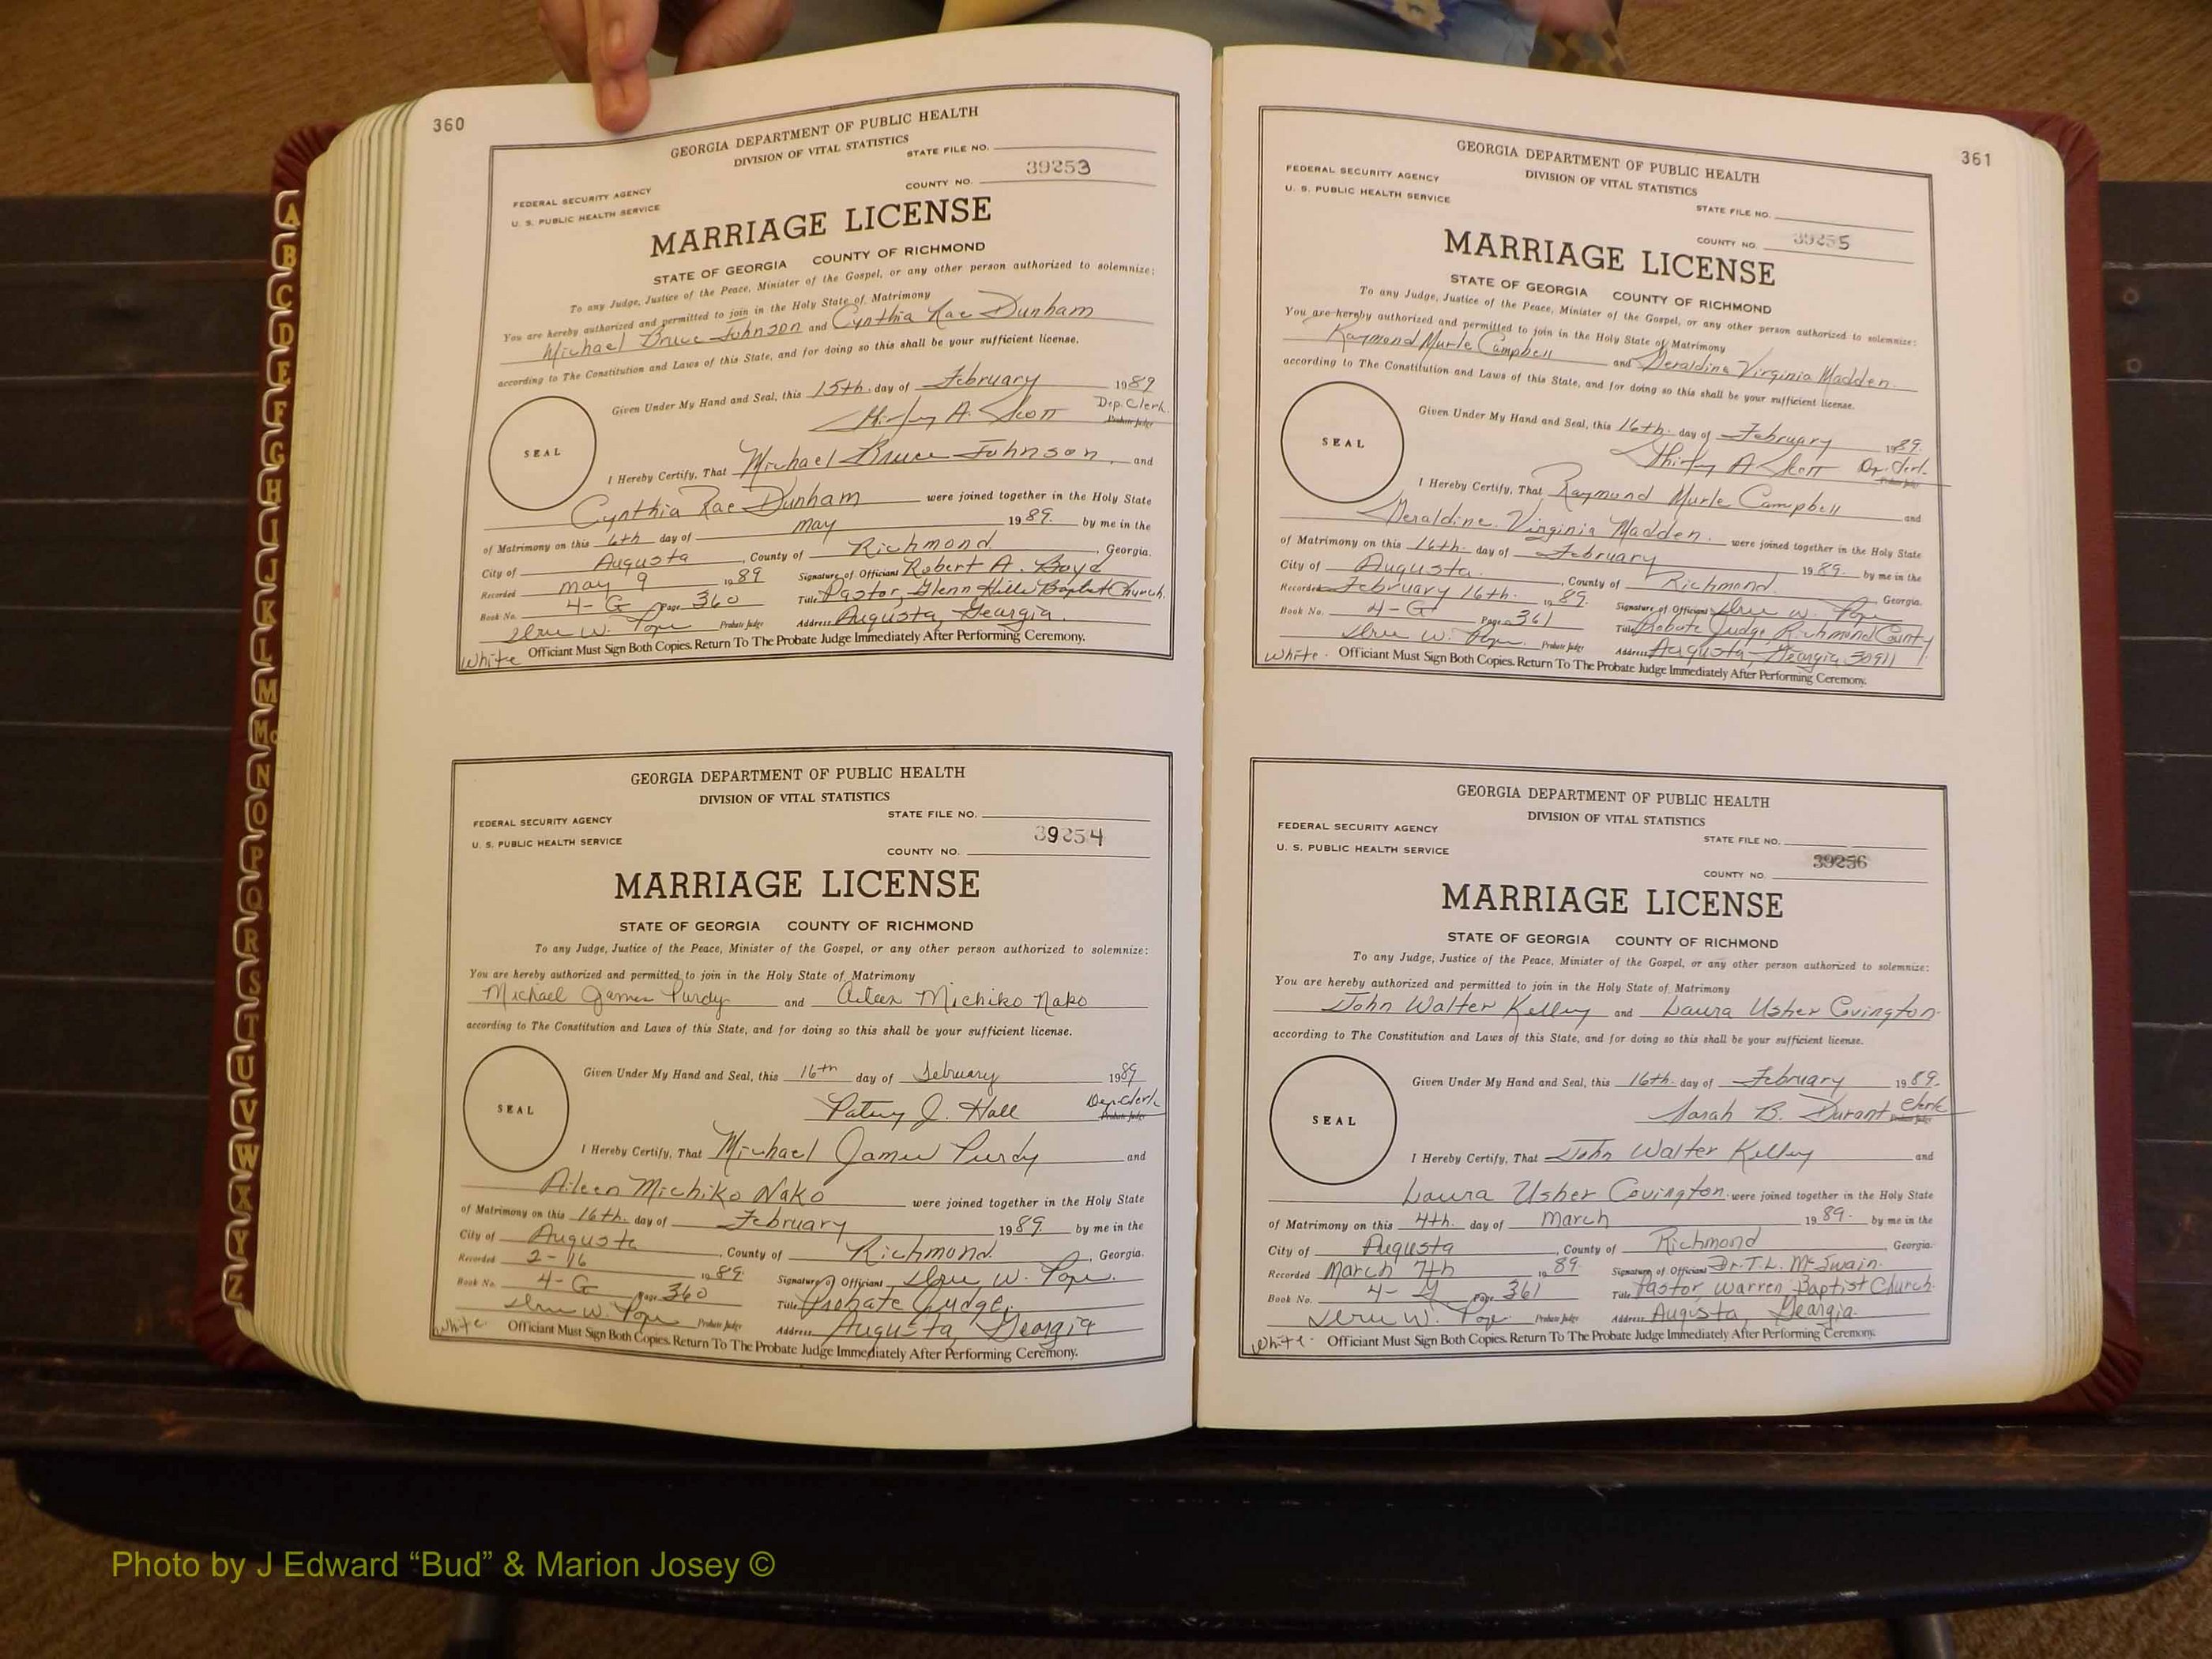 360
GEORGIA DEPARTMENT OF PUBLIC HEALTH
DIVISION OF VITAL STATISTICS
STATE FILE NO.
39253
COUNTY NO.
FEDERAL SECURITY AGENCY
U. S. PUBLIC HEALTH SERVICE
MARRIAGE LICENSE
STATE OF GEORGIA COUNTY OF RICHMOND
To any Judge, Justice of the Peace, Minister of the Gospel, or any other person authorized to solemnize:
You are hereby authorized and permitted to join in the Holy State of Matrimony
Michael Bruce Johnson and Cynthia Rae Dunham
according to The Constitution and Laws of this State, and for doing so this shall be your sufficient license.
Given Under My Hand and Seal, this 15th. day of February 1989
Shirley A. Scott Dep. Clerk
Probate Judge
SEAL
I Hereby Certify, That Michael Bruce Johnson, and
Cynthia Rae Dunham were joined together in the Holy State
of Matrimony on this 6th day of May 1989. by me in the
City of Augusta, County of Richmond, Georgia.
Recorded May 9 1989 Signature of Officiant Robert A. Boyd
Book No. 4-G Page 360 Title Pastor, Glenn Hills Baptist Church.
W. Pope Probate Judge Address Augusta, Georgia.
White Officiant Must Sign Both Copies. Return To The Probate Judge Immediately After Performing Ceremony.
GEORGIA DEPARTMENT OF PUBLIC HEALTH
DIVISION OF VITAL STATISTICS
STATE FILE NO.
FEDERAL SECURITY AGENCY
39254
U. S. PUBLIC HEALTH SERVICE
COUNTY NO.
MARRIAGE LICENSE
STATE OF GEORGIA COUNTY OF RICHMOND
To any Judge, Justice of the Peace, Minister of the Gospel, or any other person authorized to solemnize:
You are hereby authorized and permitted to join in the Holy State of Matrimony
Michael James Purdy and Aileen Michiko Nako
according to The Constitution and Laws of this State, and for doing so this shall be your sufficient license.
Given Under My Hand and Seal, this 16th day of February 1989
Patsy J. Hall Dep. Clerk
Probate Judge
SEAL
I Hereby Certify, That Michael James Purdy and
Aileen Michiko Nako were joined together in the Holy State
of Matrimony on this 16th. day of February 1989. by me in the
City of Augusta, County of Richmond, Georgia.
Recorded 2-16 1989 Signature of Officiant W. Pope.
Book No. 4-G Page 360 Title Probate Judge,
W. Pope Probate Judge Address Augusta, Georgia
White. Officiant Must Sign Both Copies. Return To The Probate Judge Immediately After Performing Ceremony.
361
GEORGIA DEPARTMENT OF PUBLIC HEALTH
DIVISION OF VITAL STATISTICS
FEDERAL SECURITY AGENCY
U. S. PUBLIC HEALTH SERVICE
STATE FILE NO.
COUNTY NO. 39255
MARRIAGE LICENSE
STATE OF GEORGIA COUNTY OF RICHMOND
To any Judge, Justice of the Peace, Minister of the Gospel, or any other person authorized to solemnize:
You are hereby authorized and permitted to join in the Holy State of Matrimony
Raymond Murle Campbell and Geraldine Virginia Madden.
according to The Constitution and Laws of this State, and for doing so this shall be your sufficient license.
Given Under My Hand and Seal, this 16th. day of February 1989.
Shirley A Scott Dep. Clerk
Probate Judge
SEAL
I Hereby Certify, That Raymond Murle Campbell and
Geraldine Virginia Madden. were joined together in the Holy State
of Matrimony on this 16th. day of February 1989. by me in the
City of Augusta., County of Richmond. Georgia.
Recorded February 16th. 1989. Signature of Officiant W. Pope
Book No. 4-G Page 361 Title Probate Judge Richmond County
W. Pope Probate Judge Address Augusta, Georgia 30911
White. Officiant Must Sign Both Copies. Return To The Probate Judge Immediately After Performing Ceremony.
GEORGIA DEPARTMENT OF PUBLIC HEALTH
DIVISION OF VITAL STATISTICS
FEDERAL SECURITY AGENCY
STATE FILE NO.
U. S. PUBLIC HEALTH SERVICE
39256
COUNTY NO.
MARRIAGE LICENSE
STATE OF GEORGIA COUNTY OF RICHMOND
To any Judge, Justice of the Peace, Minister of the Gospel, or any other person authorized to solemnize:
You are hereby authorized and permitted to join in the Holy State of Matrimony
John Walter Kelley and Laura Usher Covington.
according to The Constitution and Laws of this State, and for doing so this shall be your sufficient license.
Given Under My Hand and Seal, this 16th. day of February 1989.
Sarah B. Durant Clerk
Probate Judge
SEAL
I Hereby Certify, That John Walter Kelley and
Laura Usher Covington. were joined together in the Holy State
of Matrimony on this 4th. day of March 1989. by me in the
City of Augusta, County of Richmond, Georgia.
Recorded March 7th 1989. Signature of Officiant Dr. T.L. McSwain.
Book No. 4-G Page 361 Title Pastor Warren Baptist Church.
W. Pope Probate Judge Address Augusta, Georgia.
White. Officiant Must Sign Both Copies. Return To The Probate Judge Immediately After Performing Ceremony.
A
B
C
D
E
F
G
H
I
J
K
L
M
Mc
N
O
P
Q
R
S
T
U
V
W
X
Y
Z
Photo by J Edward “Bud” & Marion Josey ©